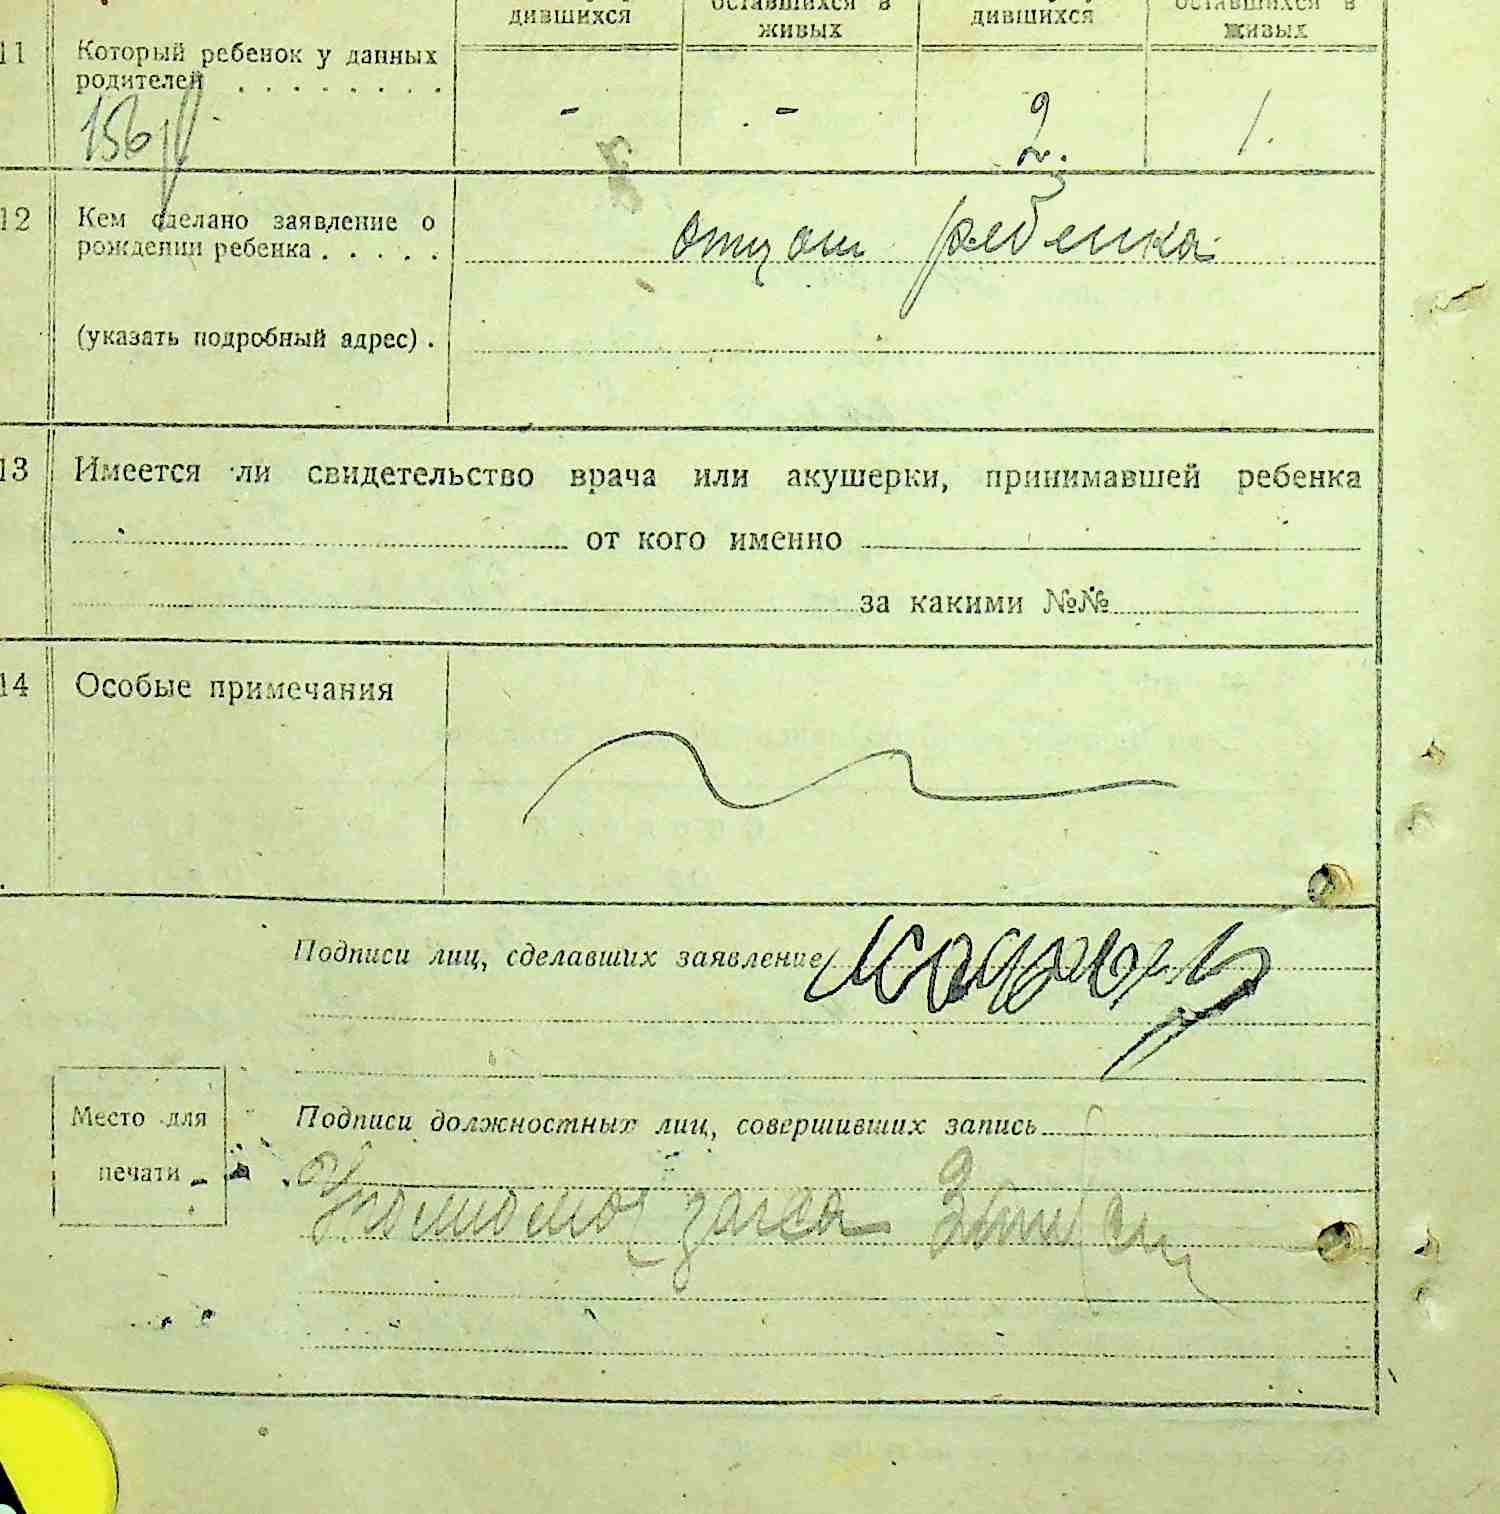 дившихся оставшихся в живых дившихся оставшихся в живых
11 Который ребенок у данных
родителей . . . . . . . .
- - 2 1.
12 Кем сделано заявление о
рождении ребенка . . . . .
отцом ребенка
(указать подробный адрес) .
13 Имеется ли свидетельство врача или акушерки, принимавшей ребенка
от кого именно
за какими №№
14 Особые примечания
Подписи лиц, сделавших заявление
Место для
печати
Подписи должностных лиц, совершивших запись
загса